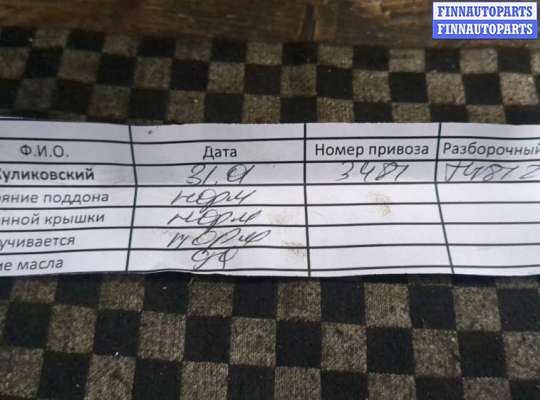 FINNAUTOPARTS
FINNAUTOPARTS
Ф.И.О. Дата Номер привоза Разборочный
Куликовский 31.01 3487 T4812
яние поддона норм
нной крышки норм
учивается норм
ие масла да